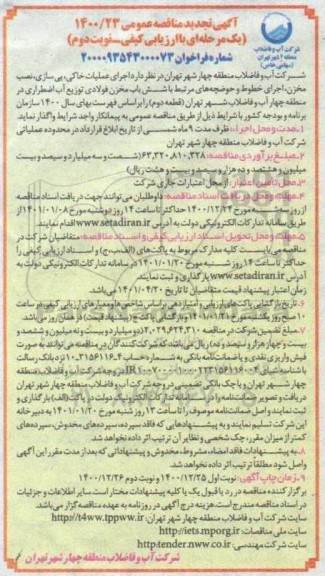 آگهی تجدید مناقصه عمومی ۱۴۰۰/۲۳
(یک مرحله‌ای با ارزیابی کیفی ـ نوبت دوم)
شماره فراخوان ۲۰۰۰۰۹۵۴۳۰۰۰۰۷۳
شرکت آب و فاضلاب
منطقه ۴ شهر تهران
(سهامی خاص)
شرکت آب و فاضلاب منطقه چهار شهر تهران در نظر دارد اجرای عملیات خاکی، پی سازی، نصب
مخزن، اجرای خطوط و حوضچه‌های مرتبط با شش باب مخزن فولادی توزیع آب اضطراری در
منطقه چهار آب و فاضلاب شهر تهران (قطعه دوم) را براساس فهرست بهای سال ۱۴۰۰ سازمان
برنامه و بودجه کشور با شرایط ذیل از طریق مناقصه عمومی به پیمانکار واجد شرایط واگذار نماید.
۱ـ مدت و محل اجرا: ظرف مدت ۹ ماه شمسی از تاریخ ابلاغ قرارداد در محدوده عملیاتی
۲ـ مبلغ برآوردی مناقصه: ۶۳,۳۲۰,۸۱۰,۳۲۸ (شصت و سه میلیارد و سیصد و بیست
میلیون و هشتصد و ده هزار و سیصد و بیست و هشت ریال)
۳ـ محل تأمین اعتبار: از محل اعتبارات جاری شرکت
۴ـ مهلت و محل دریافت اسناد مناقصه: داوطلبان می‌توانند جهت دریافت اسناد مناقصه
از روز سه شنبه مورخ ۱۴۰۰/۱۲/۲۴ حداکثر تا ساعت ۱۴ روز دوشنبه مورخ ۱۴۰۱/۰۱/۰۸ از
طریق سامانه تدارکات الکترونیکی دولت به آدرس www.setadiran.ir اقدام نمایند.
۵ـ مهلت و محل تحویل اسناد ارزیابی کیفی و اسناد مناقصه: متقاضیان شرکت در
مناقصه می‌بایست کلیه مدارک مربوط به پاکت‌های (الف، ب، ج) و اسناد ارزیابی کیفی را
حداکثر تا ساعت ۱۴ روز شنبه مورخ ۱۴۰۱/۰۱/۲۰ در سامانه تدارکات الکترونیکی دولت به
آدرس www.setadiran.ir بارگذاری و ثبت نمایند.
زمان اعتبار پیشنهاد قیمت متقاضیان تا تاریخ ۱۴۰۱/۰۴/۲۰ می‌باشد.
۶ـ تاریخ بازگشایی پاکت‌های ارزیابی و امتیازدهی براساس شاخص‌ها و معیارهای ارزیابی کیفی در ساعت
۱۰ صبح روز یکشنبه مورخ ۱۴۰۱/۰۱/۲۱ و بازگشایی پاکت ج (پیشنهاد قیمت) در همان روز می‌باشد.
۷ـ مبلغ تضمین شرکت در مناقصه ۲,۰۲۹,۶۲۴,۳۱۰ (دو میلیارد و بیست و نه میلیون و ششصد و
بیست و چهار هزار و سیصد و ده) ریال می‌باشد که شرکت کنندگان در مناقصه می‌توانند به صورت
فیش واریزی نقدی و یا ضمانت‌نامه بانکی به شماره حساب
چهار شهر تهران و یا چک بانکی تضمینی در وجه شرکت آب و فاضلاب منطقه چهار شهر تهران
دریافت و تصویر ضمانت‌نامه را در سامانه تدارکات الکترونیکی دولت در پاکت (الف) بارگذاری و
ثبت نمایند و اصل ضمانت‌نامه موصوف را تا ساعت ۱۳ روز شنبه مورخ ۱۴۰۱/۰۱/۲۰ به دبیرخانه
این شرکت تسلیم نمایند و به پیشنهادهایی که فاقد سپرده، سپرده‌های مخدوش، سپرده‌های
کمتر از میزان مقرر، چک شخصی و نظایر آن ترتیب اثر داده نخواهد شد.
۸ـ به پیشنهادات فاقد امضاء، مشروط، مخدوش و پیشنهاداتی که بعد از مدت مقرر این آگهی
واصل شود مطلقاً ترتیب اثر داده نخواهد شد.
۹ـ زمان چاپ آگهی: نوبت اول ۱۴۰۰/۱۲/۲۵ و نوبت دوم ۱۴۰۰/۱۲/۲۶
برگزار کننده مناقصه در رد یا قبول یک یا کلیه پیشنهادات مختار است سایر اطلاعات و جزئیات
در اسناد مناقصه مندرج است هزینه درج آگهی در روزنامه به عهده مناقصه گزار می‌باشد.
سایت شرکت آب و فاضلاب منطقه چهار شهر تهران: http://t4ww.tppww.ir
سایت ملی مناقصات: http://iets.mporg.ir
سایت شرکت مهندسی: http:tender.nww.co.ir
شرکت آب و فاضلاب منطقه چهار شهر تهران